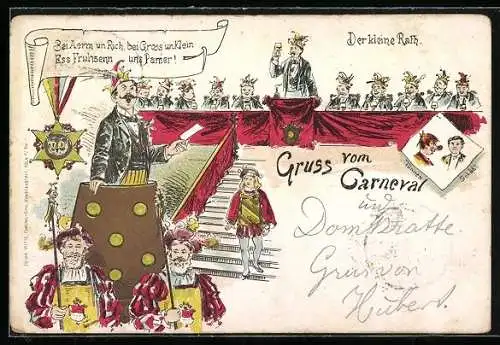 Bei Aerm un Rich, bei Gross un Klein
Ess Fruhsenn uns Pamer!
Der kleine Rath.
Gruss vom
Carneval
und
Domkratte
Gruss von
Hubert.